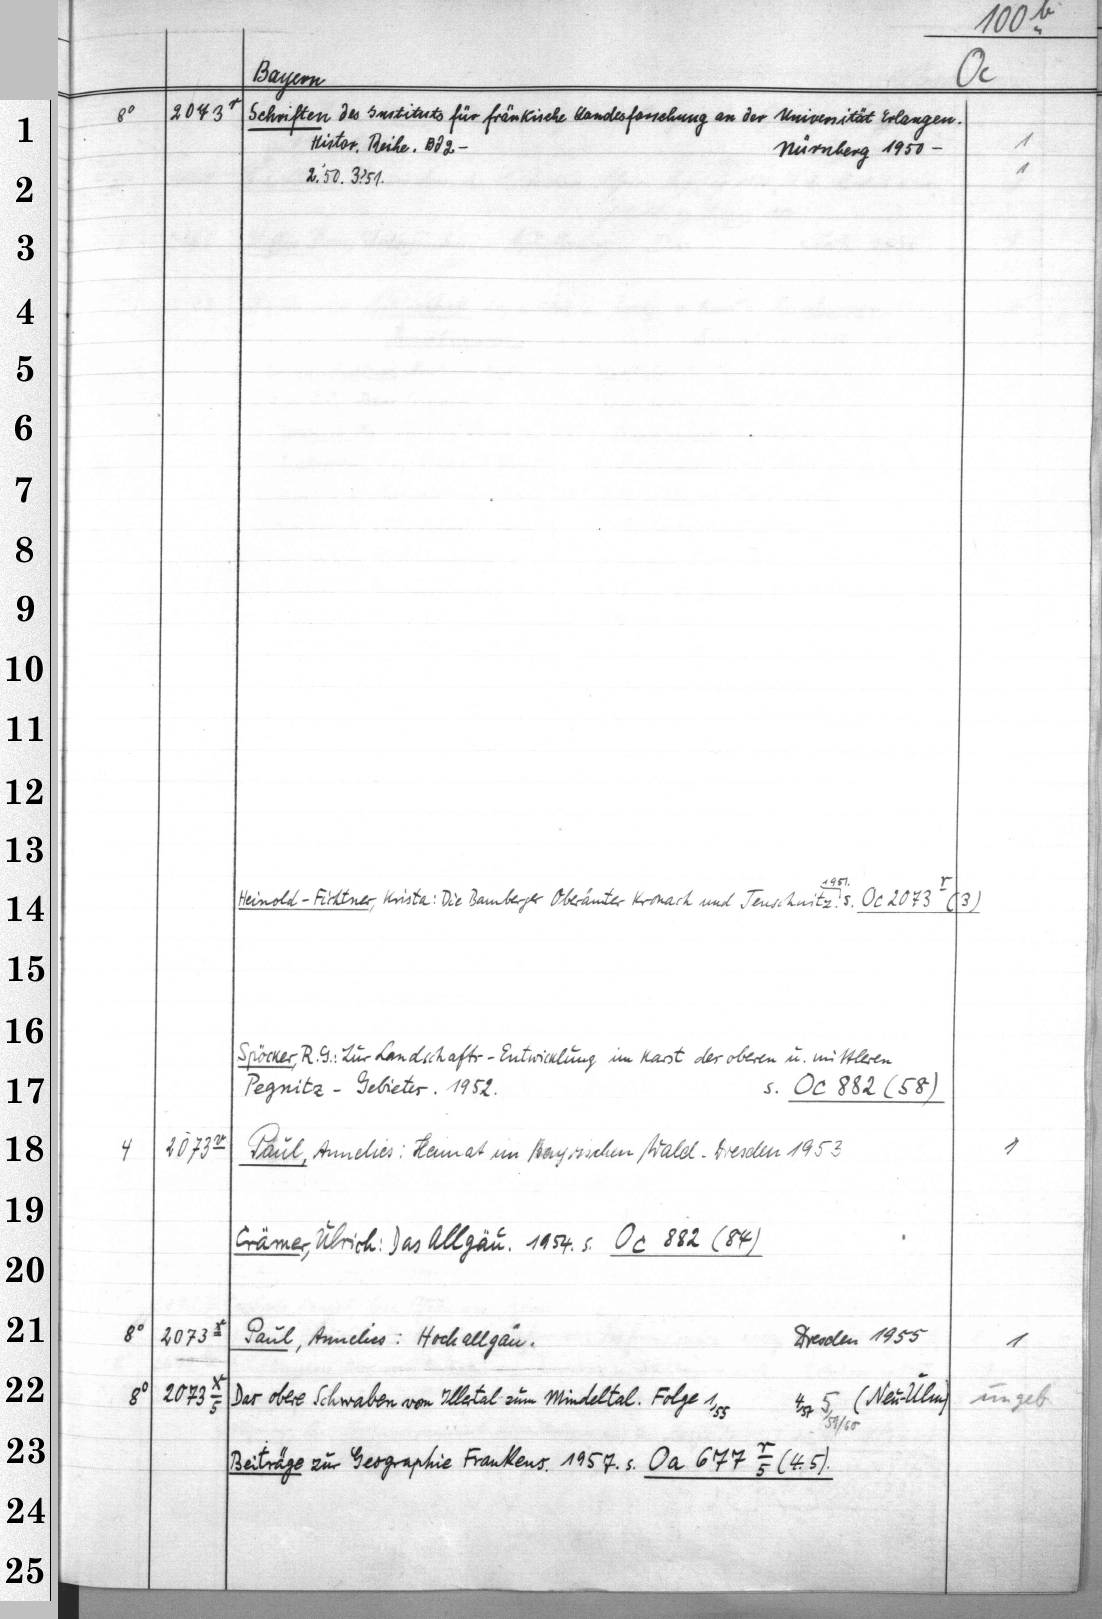 100 b
Bayern Oc
1 8° 2073 r Schriften des Instituts für fränkische Landesforschung an der Universität Erlangen.
Histor. Reihe. Bd 2 – Nürnberg 1950 – 1
2 2.'50. 3.'51. 1
3
4
5
6
7
8
9
10
11
12
13
1951.
14 Heinold-Fichtner, Krista: Die Bamberger Oberämter Kronach und Teuschnitz. s. Oc 2073 r (3)
15
16 Spöcker, R.G.: Zur Landschafts-Entwicklung im Karst der oberen u. mittleren
17 Pegnitz-Gebietes. 1952. s. Oc 882 (58)
18 4 2073 v Paul, Annelies: Heimat im Bayrischen Wald. Dresden 1953 1
19
Crämer, Ulrich: Das Allgäu. 1954. s. Oc 882 (84)
20
21 8° 2073 x Paul, Annelies: Hochallgäu. Dresden 1955 1
22 8° 2073 x/5 Das obere Schwaben vom Illertal zum Mindeltal. Folge 1,55 4,57 5,59/60 (Neu-Ulm) ungeb
23 Beiträge zur Geographie Frankens. 1957. s. Oa 677 r/5 (4.5).
24
25